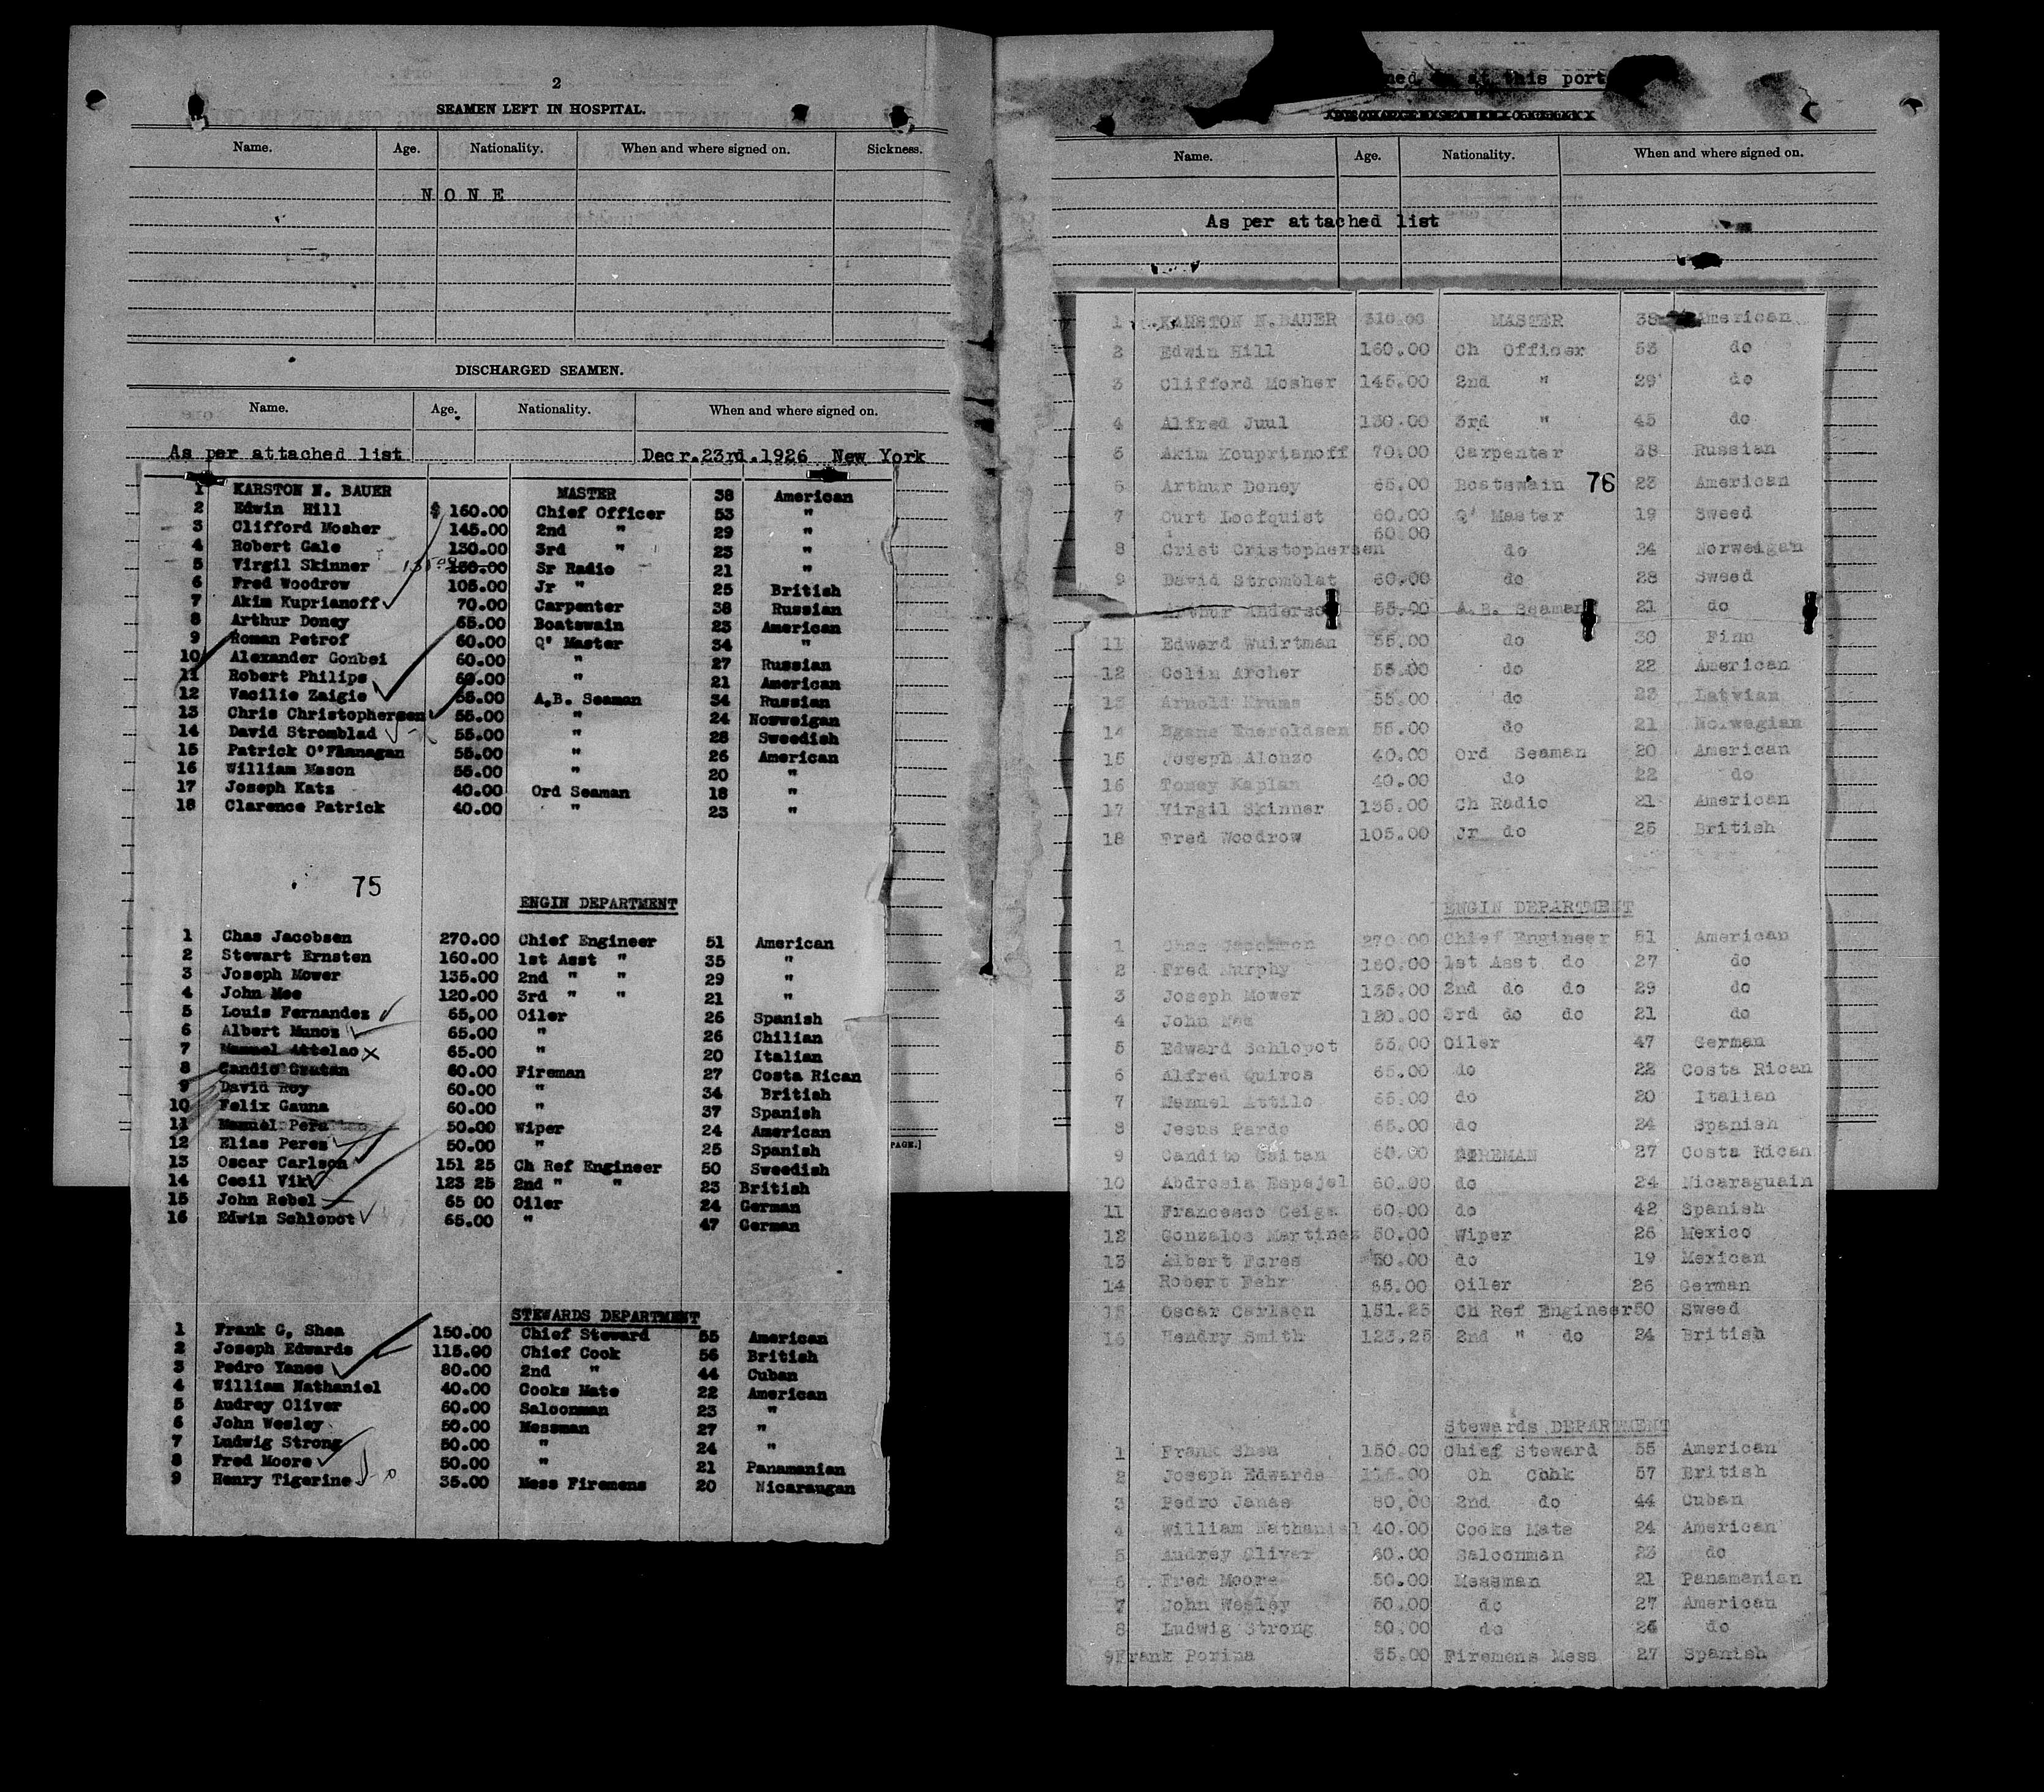 2
SEAMEN LEFT IN HOSPITAL.
Name. Age. Nationality. When and where signed on. Sickness.
NONE
DISCHARGED SEAMEN.
Name. Age. Nationality. When and where signed on.
As per attached list Decr.23rd.1926 New York
1 KARSTON N. BAUER MASTER 38 American
2 Edwin Hill $ 160.00 Chief Officer 53 "
3 Clifford Mosher 145.00 2nd " 29 "
4 Robert Gale 130.00 3rd " 23 "
5 Virgil Skinner Sr Radio 21 "
6 Fred Woodrow 105.00 Jr " 25 British
7 Akim Kuprianoff 70.00 Carpenter 38 Russian
8 Arthur Doney 65.00 Boatswain 23 American
9 Roman Petrof 60.00 Q' Master 34 "
10 Alexander Gonbei 60.00 " 27 Russian
11 Robert Philips 60.00 " 21 American
12 Vacilie Zaigie 55.00 A.B. Seaman 34 Russian
13 Chris Christophersen 55.00 " 24 Norweigan
14 David Stromblad 55.00 " 28 Swedish
15 Patrick O'Flannagan 55.00 " 26 American
16 William Mason 55.00 " 20 "
17 Joseph Katz 40.00 Ord Seaman 18 "
18 Clarence Patrick 40.00 " 23 "
75
ENGIN DEPARTMENT
1 Chas Jacobsen 270.00 Chief Engineer 51 American
2 Stewart Ernsten 160.00 1st Asst " 35 "
3 Joseph Mower 135.00 2nd " " 29 "
4 John Mee 120.00 3rd " " 21 "
5 Louis Fernandez 65,00 Oiler 26 Spanish
6 Albert Munoz 65.00 " 26 Chilian
7 Manuel Attelao 65.00 " 20 Italian
8 Candic Gratan 60.00 Fireman 27 Costa Rican
9 David Roy 60.00 " 34 British
10 Felix Gauna 60.00 " 37 Spanish
11 Manuel 50.00 Wiper 24 American
12 Elias Peres 50.00 " 25 Spanish
13 Oscar Carlson 151 25 Ch Ref Engineer 50 Swedish
14 Cecil Vik 123 25 2nd " " 23 British
15 John Rebel 65 00 Oiler 24 German
16 Edwin Schlopot 65.00 " 47 German
STEWARDS DEPARTMENT
1 Frank G, Shea 150.00 Chief Steward 55 American
2 Joseph Edwards 115.00 Chief Cook 56 British
3 Pedro Yanes 80.00 2nd " 44 Cuban
4 William Nathaniel 40.00 Cooks Mate 22 American
5 Audrey Oliver 60.00 Saloonman 23 "
6 John Wesley 50.00 Messman 27 "
7 Ludwig Strong 50.00 " 24 "
8 Fred Moore 50.00 " 21 Panamanian
9 Henry Tigerine 35.00 Mess Firemens 20 Nicaraugan
PAGE.]
at this port
Name. Age. Nationality. When and where signed on.
As per attached list
1 KARSTON N.BAUER 310.00 MASTER 38 American
2 Edwin Hill 160.00 Ch Officer 53 do
3 Clifford Mosher 145.00 2nd " 29 do
4 Alfred Juul 130.00 3rd " 45 do
5 Akim Kouprianoff 70.00 Carpenter 38 Russian
6 Arthur Doney 65.00 Boatswain 76 23 American
7 Curt Loofquist 60.00 Q' Master 19 Sweed
8 Crist Cristophersen 60.00 do 24 Norweigan
9 David Stromblat 60.00 do 28 Sweed
Arthur Anderson 55.00 A.B. Seaman 21 do
11 Edward Wuirtman 55.00 do 30 Finn
12 Colin Archer 55.00 do 22 American
13 Arnold Krums 55.00 do 23 Latvian
14 55.00 do 21 Norwegian
15 Joseph Alonzo 40.00 Ord Seaman 20 American
16 Tomey Kaplan 40.00 do 22 do
17 Virgil Skinner 135.00 Ch Radio 21 American
18 Fred Woodrow 105.00 Jr do 25 British
ENGIN DEPARTMENT
1 Chas Jacobson 270.00 Chief Engineer 51 American
2 Fred Murphy 160.00 1st Asst do 27 do
3 Joseph Mower 135.00 2nd do do 29 do
4 John Mae 120.00 3rd do do 21 do
5 Edward Schlopot 65.00 Oiler 47 German
6 Alfred Quiros 65.00 do 22 Costa Rican
7 Manuel Attilo 65.00 do 20 Italian
8 Jesus Pardo 65.00 do 24 Spanish
9 Candito Gaitan 60.00 FIREMAN 27 Costa Rican
10 Abdrosia Espejel 60.00 do 24 Nicaraguain
11 Francesco Ceiga 60.00 do 42 Spanish
12 Gonzalos Martinez 50.00 Wiper 26 Mexico
13 Albert Fores 50.00 do 19 Mexican
14 Robert Fehr 65.00 Oiler 26 German
15 Oscar Carlsen 151.25 Ch Ref Engineer 50 Sweed
16 Hendry Smith 123.25 2nd " do 24 British
Stewards DEPARTMENT
1 Frank Shea 150.00 Chief Steward 55 American
2 Joseph Edwards 115.00 Ch Cook 57 British
3 Pedro Janas 80.00 2nd do 44 Cuban
4 William Nathaniel 40.00 Cooks Mate 24 American
5 Audrey Oliver 60.00 Saloonman 23 do
6 Fred Moore 50.00 Messman 21 Panamanian
7 John Wesley 50.00 do 27 American
8 Ludwig Strong 50.00 do 26 do
9 Frank Porina 35.00 Firemens Mess 27 Spanish